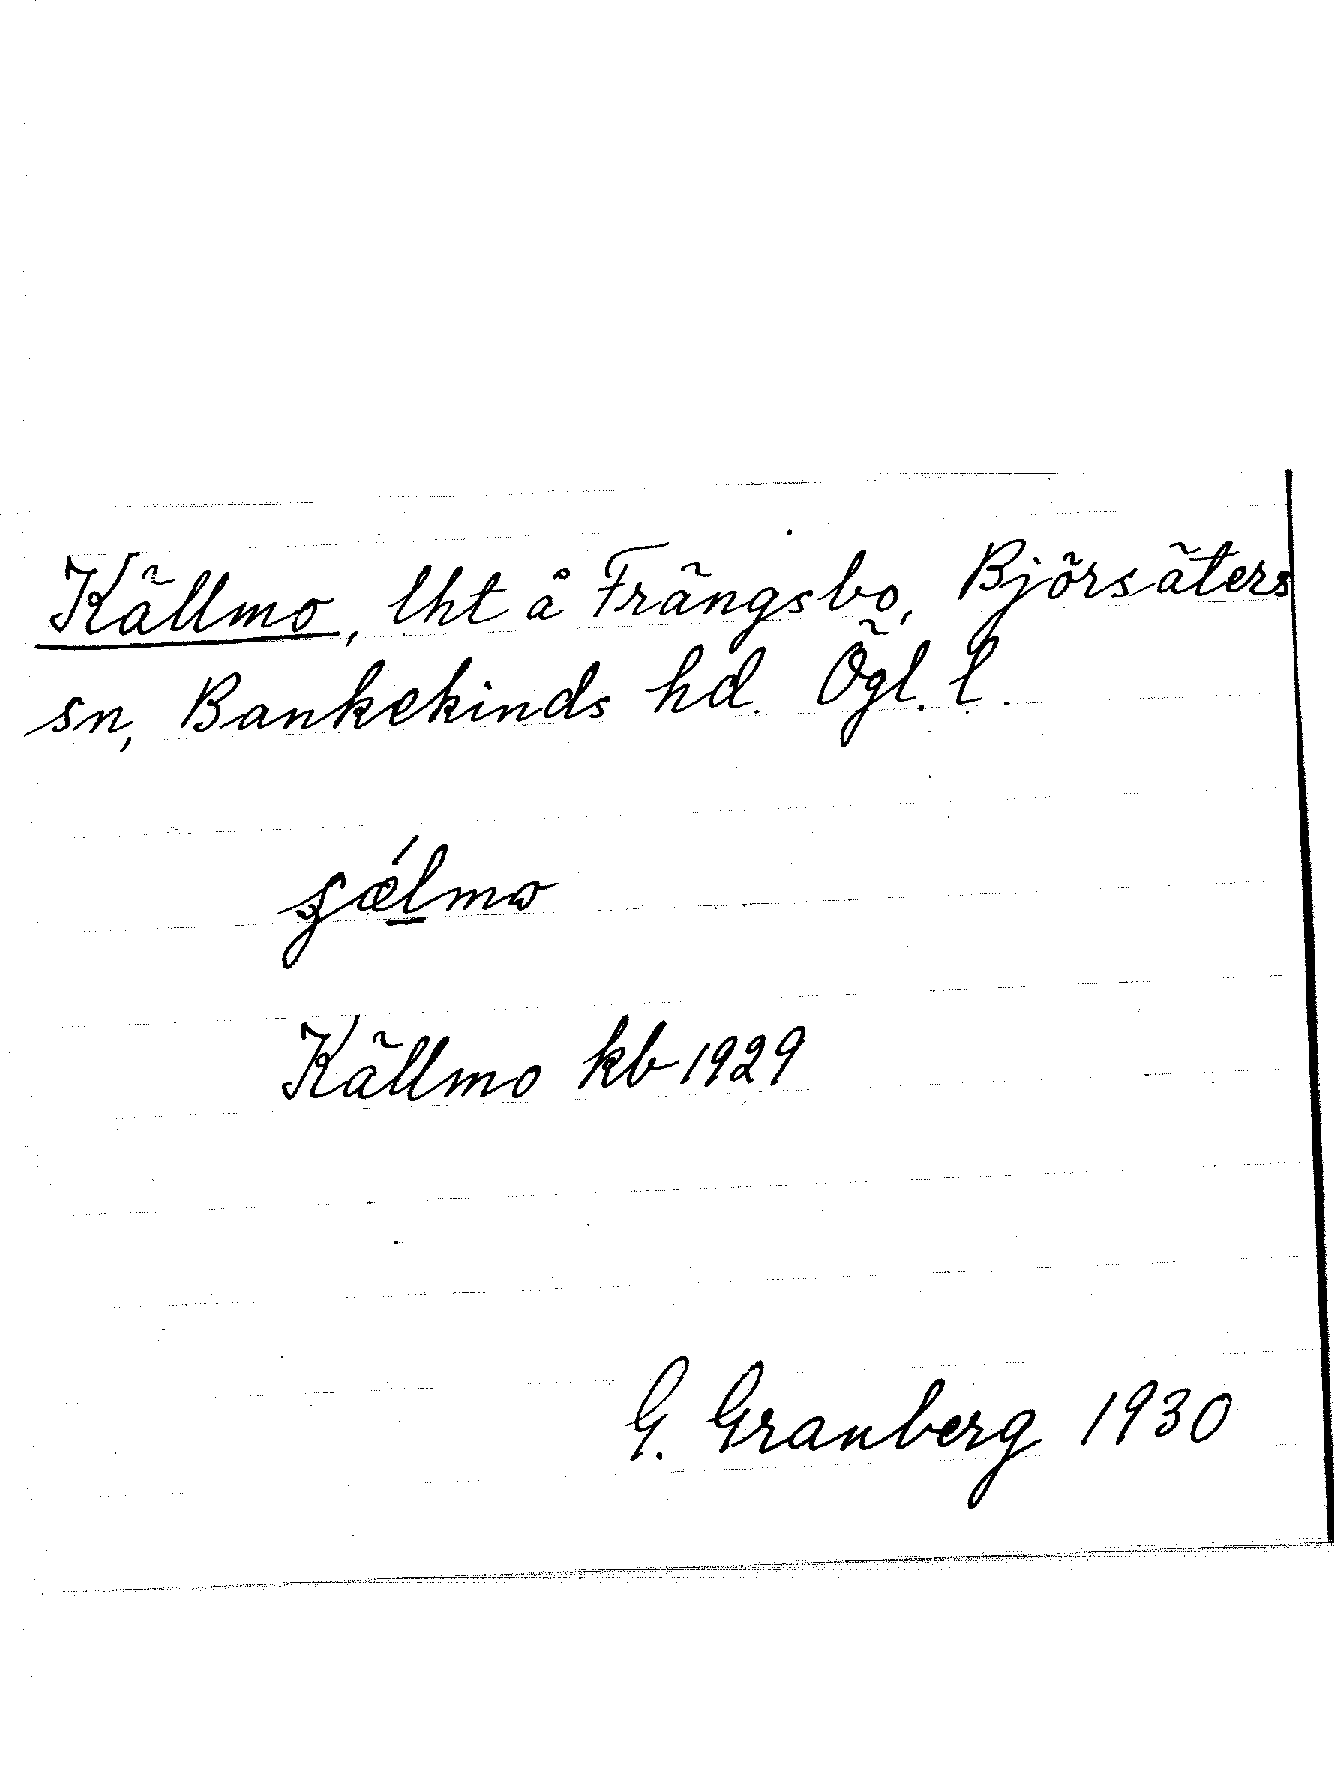 Källmo, lht å Frängsbo, Björsäters
sn, Bankekinds hd. Ögl. l.
Källmo kb 1929
G. Granberg 1930